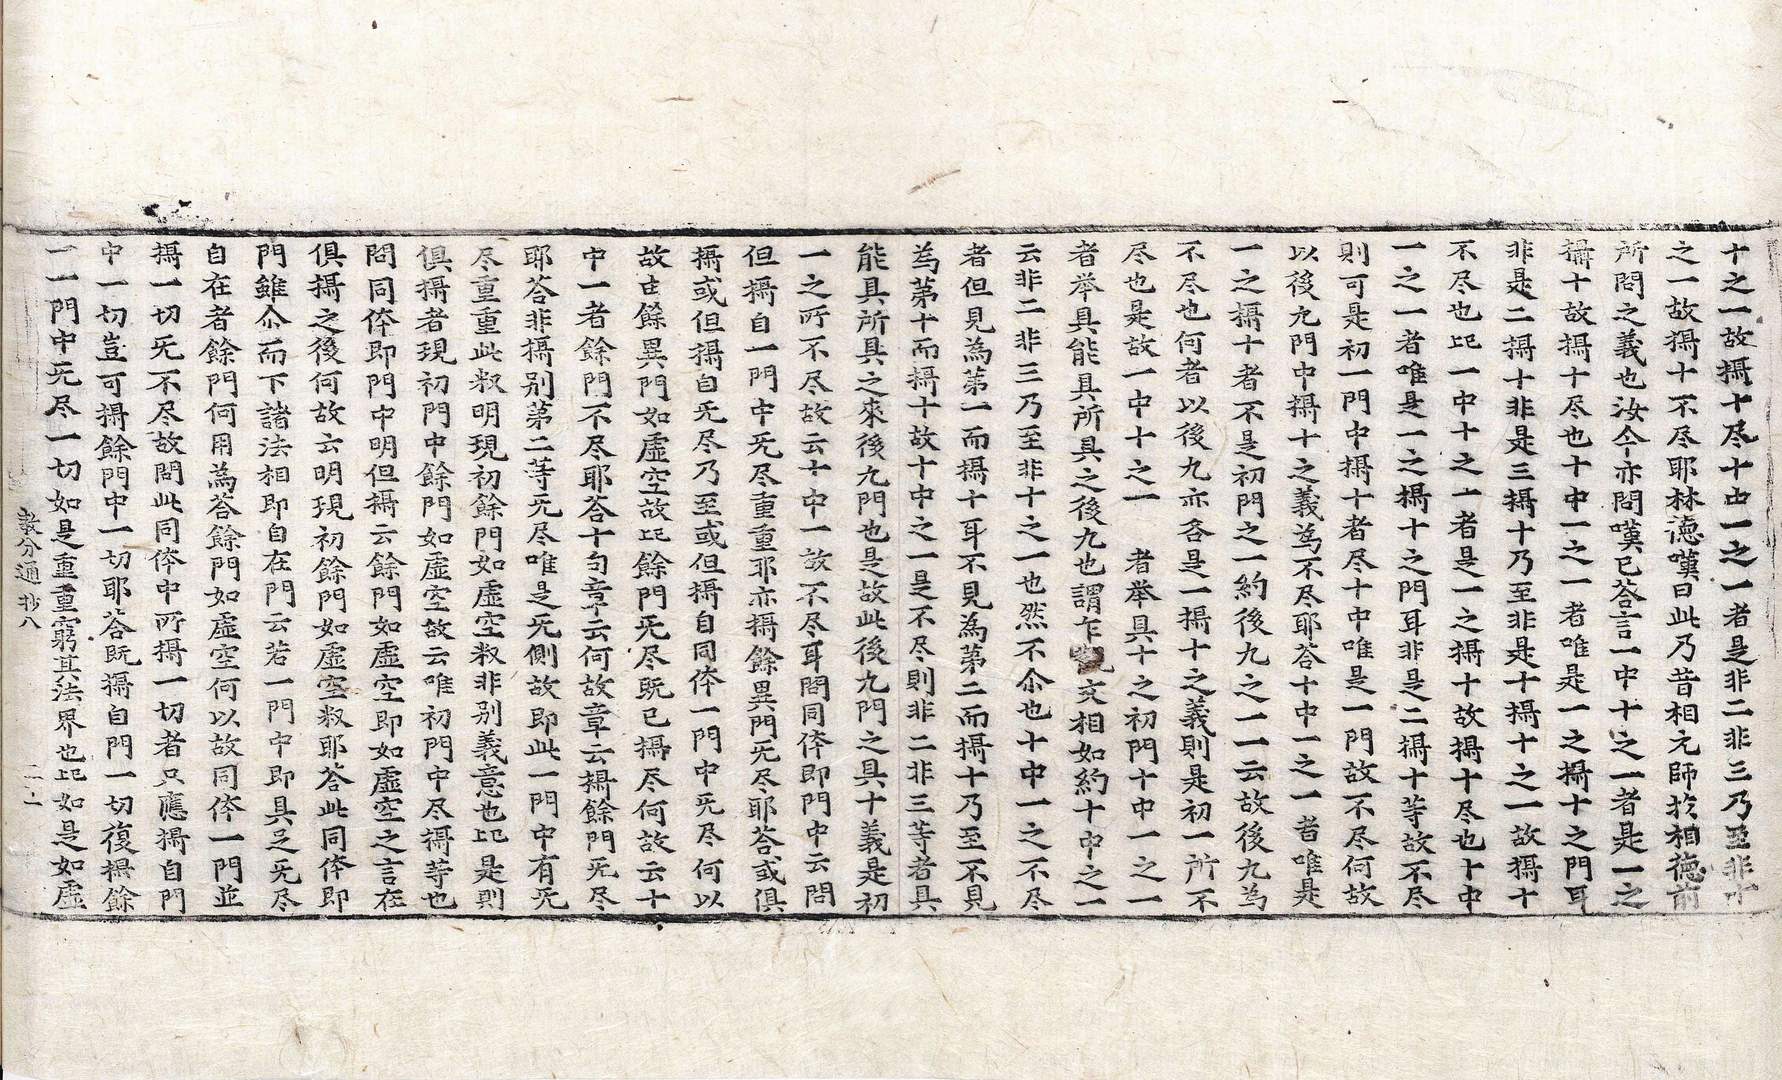 十之一故攝十尽十中一之一者是非二非三乃至非十
之一故攝十不尽耶林德嘆曰此乃昔相元師扵相德前
所問之義也汝今亦問嘆已荅言一中十之一者是一之
攝十故攝十尽也十中一之一者唯是一之攝十之門耳
非是二攝十非是三攝十乃至非是十攝十之一故攝十
不尽也又一中十之一者是一之攝十故攝十尽也十中
一之一者唯是一之攝十之門耳非是二攝十等故不尽
則可是初一門中攝十者尽十中唯是一門故不尽何故
以後九門中攝十之義爲不尽耶荅十中一之一者唯是
一之攝十者不是初門之一約後九之一一云故後九為
不尽也何者以後九亦各是一攝十之義則是初一所不
尽也是故一中十之一 者举具十之初門十中一之一
者举具能具所具之後九也謂乍文相如約十中之一
云非二非三乃至非十之一也然不尒也十中一之不尽
者但見為第一而攝十耳不見為第二而攝十乃至不見
為第十而攝十故十中之一是不尽則非二非三等者具
能具所具之來後九門也是故此後九門之具十義是初
一之所不尽故云十中一故不尽耳問同体即門中云問
但攝自一門中旡尽重重耶亦攝餘異門旡尽耶荅或俱
攝或但攝自旡尽乃至或但攝自同体一門中旡尽何以
故由餘異門如虛空故又餘門旡尽既已攝尽何故云十
中一者餘門不尽耶荅十句章云何故章云攝餘門旡尽
耶荅非攝别第二等旡尽唯是旡側故即此一門中有旡
尽重重此叙明現初餘門如虛空叙非别義意也又是則
俱攝者現初門中餘門如虛空故云唯初門中尽攝等也
問同体即門中明但攝云餘門如虛空即如虛空之言在
俱攝之後何故云明現初餘門如虛空叙耶荅此同体即
門雖尒而下諸法相即自在門云若一門中即具足旡尽
自在者餘門何用為荅餘門如虛空何以故同体一門並
攝一切旡不尽故問此同体中所攝一切者只應攝自門
中一切豈可攝餘門中一切耶荅既攝自門一切復攝餘
一一門中旡尽一切如是重重窮其法界也又如是如虛
教分通抄八 二十